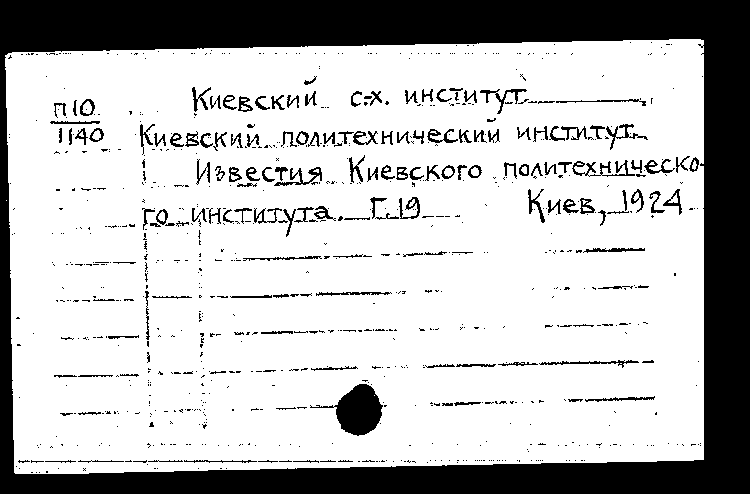 Киевский с-х. институт
П10
1140
Киевский политехнический институт.
Известия Киевского политехническо-
го института. Г.19 Киев, 1924